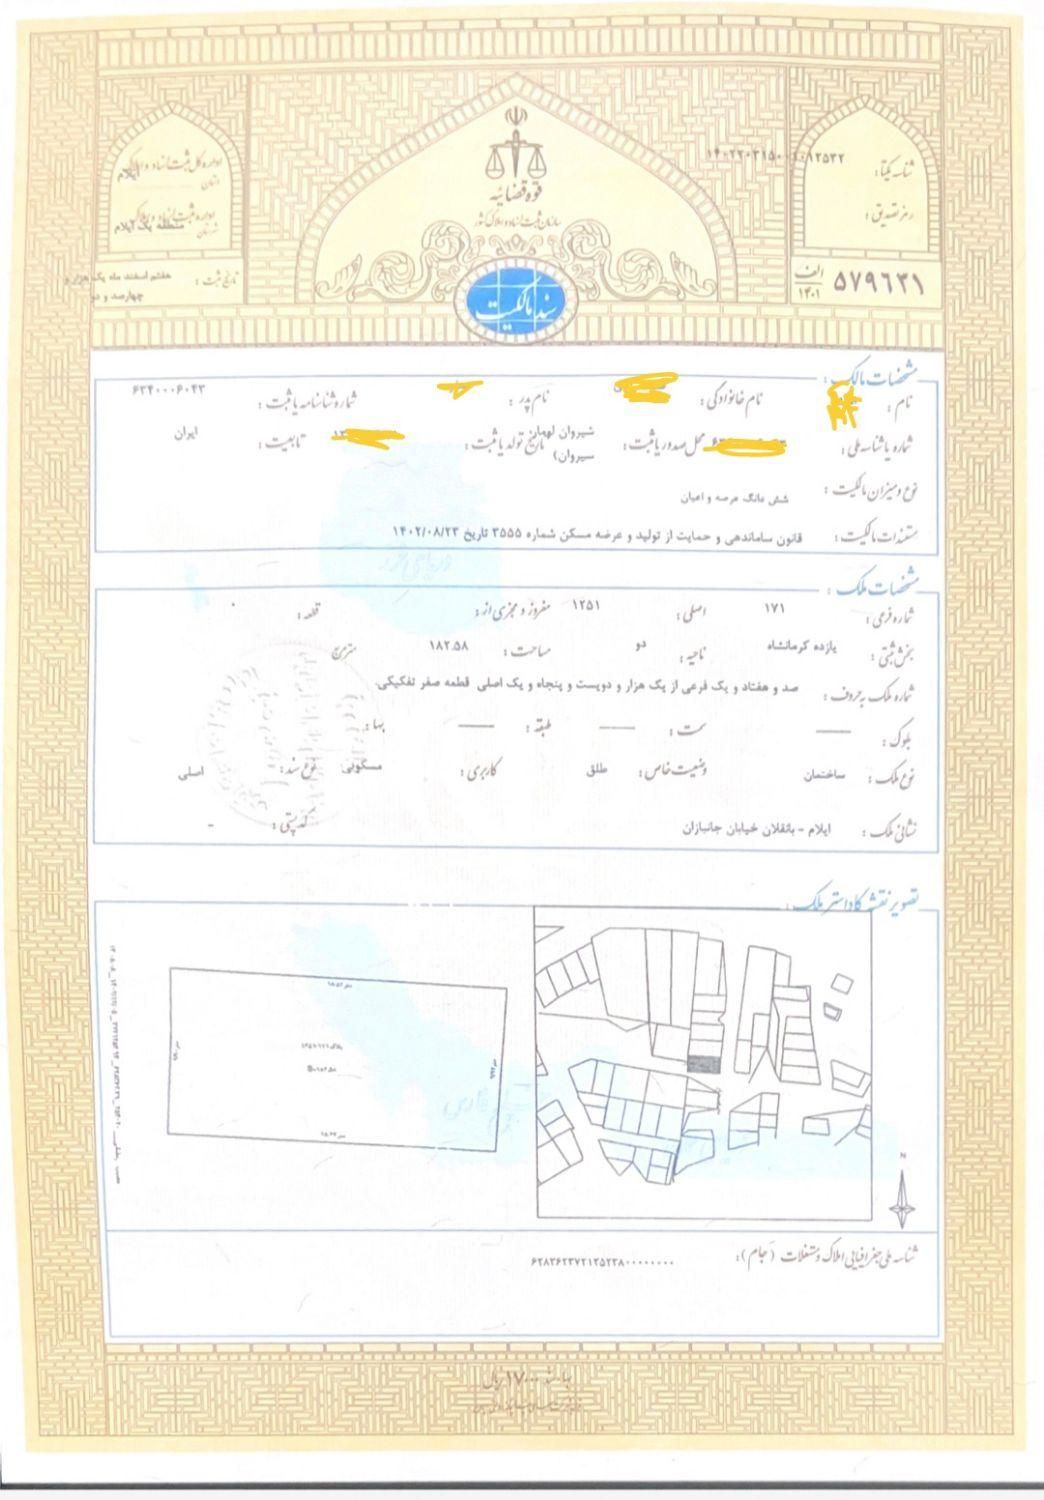 قوه قضائیه
سازمان ثبت اسناد و املاک کشور
سند مالکیت
شناسه یکتا:
رمز تصدیق:
۵۷۹۶۳۱ الف ۱۴۰۱
اداره کل ثبت اسناد و املاک استان ایلام
اداره ثبت اسناد و املاک شهرستان منطقه یک ایلام
تاریخ ثبت: هفتم اسفند ماه یک هزار و چهارصد و دو
مشخصات مالک:
نام: نام خانوادگی: نام پدر: شماره شناسنامه یا ثبت: ۶۳۴۰۰۰۶۰۴۳
شماره یا شناسه ملی: محل صدور یا ثبت: شیروان سیروان) تاریخ تولد یا ثبت: تابعیت: ایران
نوع و میزان مالکیت: شش دانگ عرصه و اعیان
مستندات مالکیت: قانون ساماندهی و حمایت از تولید و عرضه مسکن شماره ۳۵۵۵ تاریخ ۱۴۰۲/۰۸/۲۳
مشخصات ملک:
شماره فرعی: ۱۷۱ اصلی: ۱۲۵۱ مفروز و مجزی از: قطعه: ۰
بخش ثبتی: یازده کرمانشاه ناحیه: دو مساحت: ۱۸۲.۵۸ مترمربع
شماره ملک به حروف: صد و هفتاد و یک فرعی از یک هزار و دویست و پنجاه و یک اصلی قطعه صفر تفکیکی.
بلوک: —— سمت: —— طبقه: —— بها:
نوع ملک: ساختمان وضعیت خاص: طلق کاربری: مسکونی نوع سند: اصلی
نشانی ملک: ایلام - بانقلان خیابان جانبازان کدپستی: -
تصویر نقشه کاداستر ملک:
N
شناسه ملی جغرافیایی املاک و مستغلات (جام): ۶۲۸۳۶۲۳۷۲۱۲۵۲۳۸۰۰۰۰۰۰۰۰